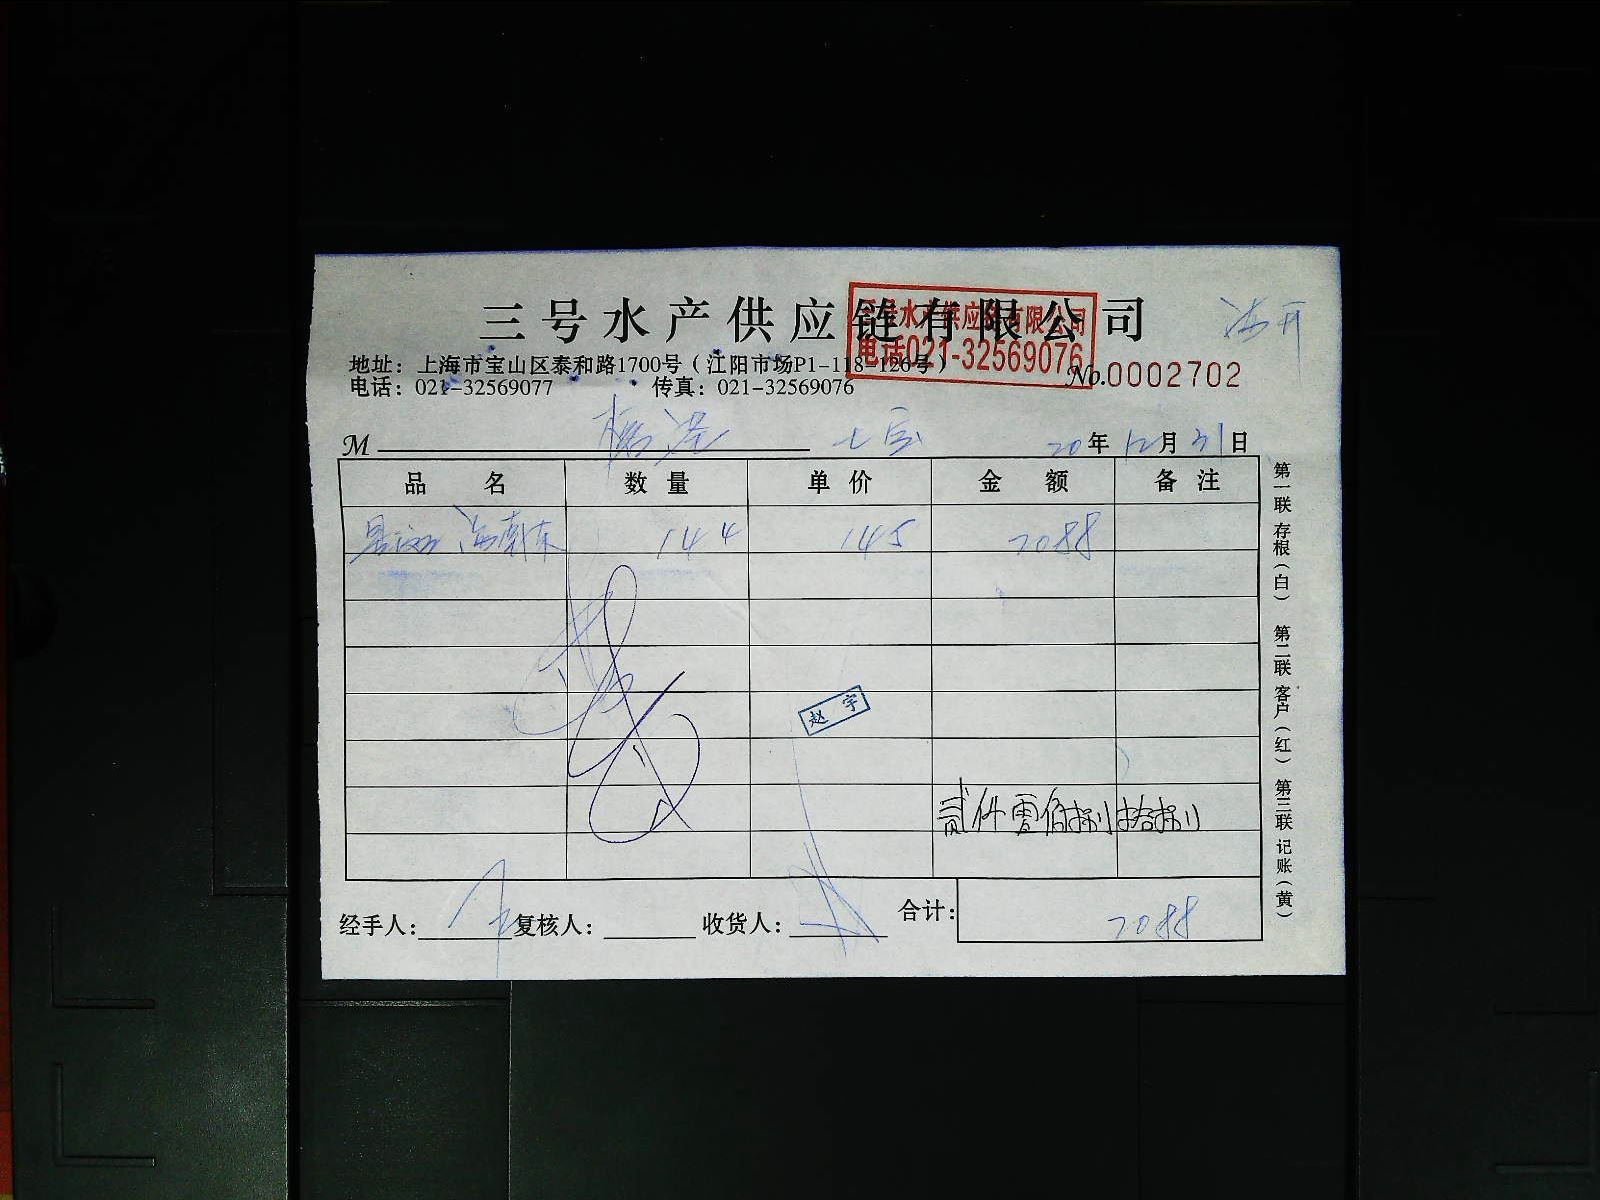 三号水产供应链有限公司
三号水产供应链有限公司
电话021-32569076
地址：上海市宝山区泰和路1700号（江阳市场P1-118-126号）
电话：021-32569077 传真：021-32569076
No.0002702
M 七宝 20年12月31日
品名 数量 单价 金额 备注
144 145 2088
赵宇
贰仟零佰捌拾捌
经手人： 复核人： 收货人： 合计： 2088
第一联 存根（白） 第二联 客户（红） 第三联 记账（黄）